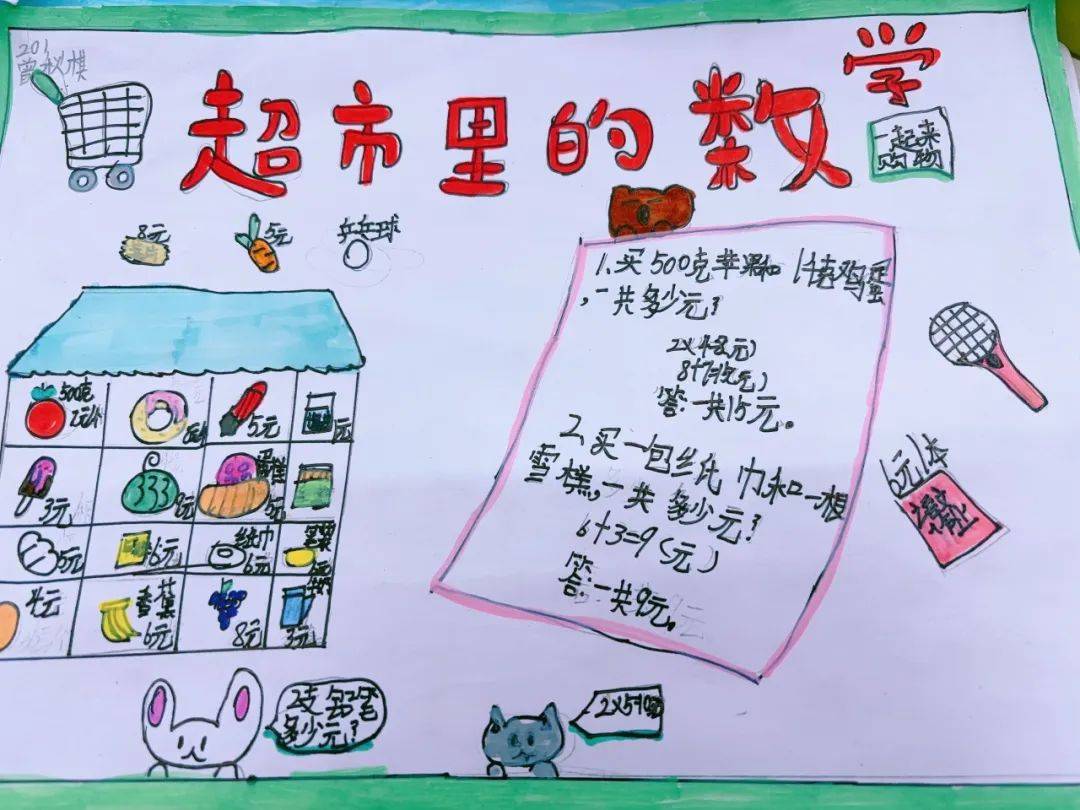 201
超市里的数学
一起来
购物
8元
5元
乒乓球
1.买500克苹果和1千克鸡蛋
,一共多少元?
2×4=8(元)
8+7=15(元)
答:一共15元。
2.买一包纸巾和一根
雪糕,一共多少元?
6+3=9(元)
答:一共9元。
500克
2元
5元
元
3元
8元
蛋糕
5元
5元
6元
纸巾
6元
4元
香蕉
6元
8元
3元
6元1本
2支铅笔
多少元?
2×5=10